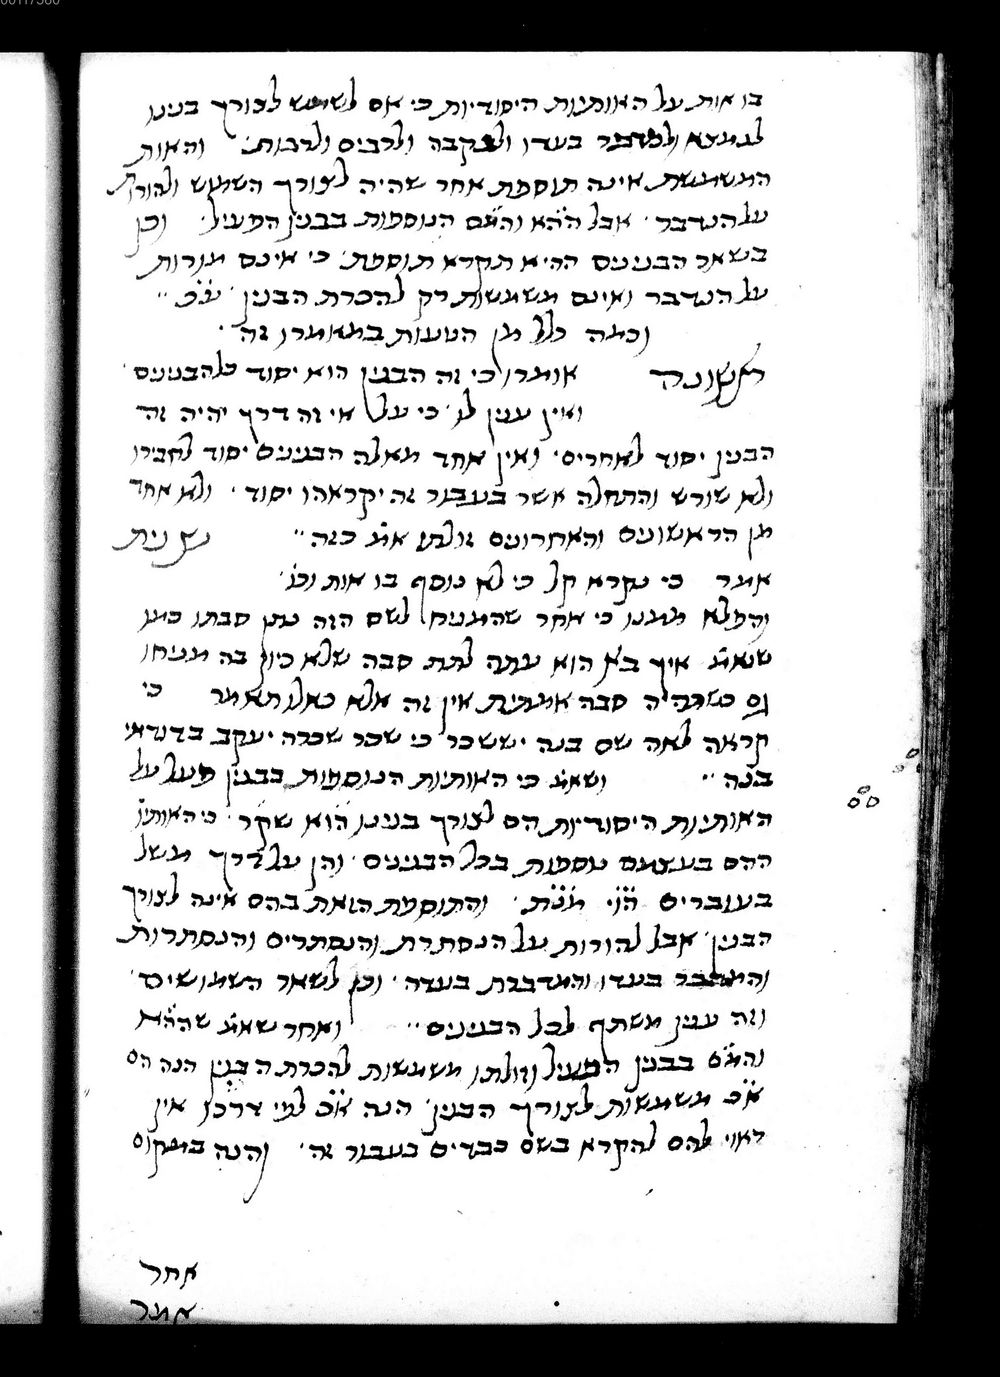 בו אות על האותיות היסודיות כי אם לשמש לצורך בנינו
לנמצא ולמדבר בעדו ולנקבה ולרבים ולרבות׳ והאות
המשמשת אינה תוספת אחר שהיה לצורך השמוש ולהורות
על הנדבר׳ אבל הה̇א̇ והמ̇ם̇ הנוספות בבנין הפעיל׳ וכן
בשאר הבנינים ההיא תקרא תוספת׳ כי אינם מורות
על הנדבר ואינם משמשות רק להכרת הבנין׳ ע̇כ̇
וכמה כלל מן הטעות במאמרו זה׳
ראשונה אומרו כי זה הבנין הוא יסוד כל הבנינים׳
ואין ענין לו׳ כי על אי זה דרך יהיה זה
הבנין יסוד לאחרים׳ ואין אחד מאלה הבנינים יסוד לחבירו
ולא שורש והתחלה אשר בעבור זה יקראהו יסוד׳ ולא אחד
מן הראשונים והאחרונים זולתו אמ׳ כזה׳׳ שנית
אמר כי נקרא קל כי לא נוסף בו אות וכו׳
והפלא ממנו כי אחר שהמניח לשם הזה נתן סבתו כמו
שאמ׳ איך בא הוא עתה לתת סבה שלא כיון בה מניחו
גם כשתהיה סבה אמתית אין זה אלא כאלו תאמר כי
קראה לאה שם בנה יששכר כי שכר שכרה יעקב בדודאי
בנה׳׳ ושאמ׳ כי האותיות הנוספות בבנין פעל על
האותיות היסודיות הם לצורך בנינו הוא שקר׳ כי האותיו׳
ההם בעצמם נוספות בכל הבנינים׳ והן על דרך משל
בעוברים ה̇ו̇י̇ מ̇נ̇ת̇׳ והתוספת הזאת בהם אינה לצורך
הבנין׳ אבל להורות על הנסתרת והנסתרים והנסתרות
והמדבר בעדו והמדברת בעדה׳ וכן לשאר השמושים׳
וזה ענין משתף לכל הבנינים׳׳ ואחר שאמ׳ שהה̇א̇
והמ̇ם̇ בבנין הפעיל וזולתו משמשות להכרת הבנין הנה הם
א̇כ̇ משמשות לצורך הבנין׳ הנה א̇כ̇ לפי דרכו אין
ראוי להם להקרא בשם כבדים בעבור זה׳ והנה במקום
אחר
אמר